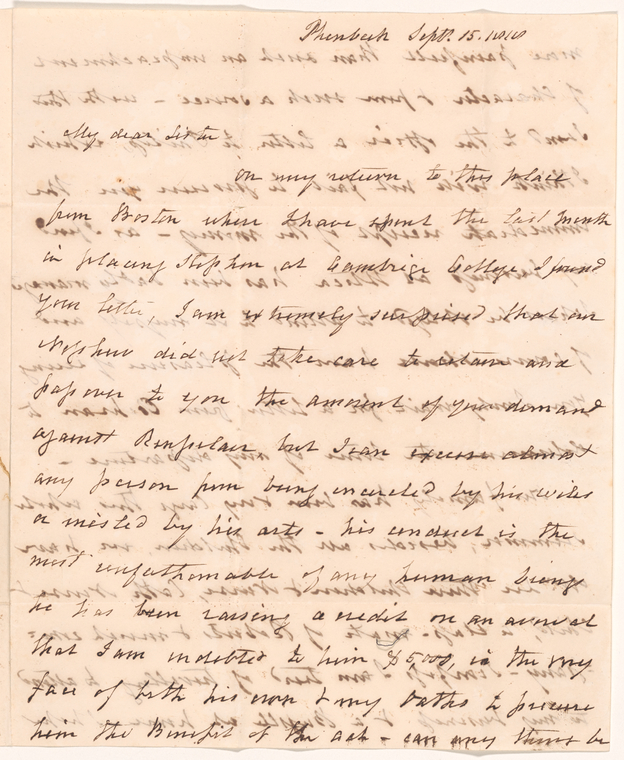 Rhenbeck Sept. 15. 1818
My dear Sister
on my return to this place
from Boston where I have spent the last month
in placing Stephen, at Cambrige College I found
your letter, I am extremely surprised that our
Nephew did not take care to retain and
pass over to you the amount of your demand
against Renselaer but I can excuse almost
any person from being encircled by his wiles
or misled by his arts - his conduct is the
most unfathomable of any human being
he has been raising a credit on an avowal
that I am indebted to him $5,000, in the very
face of both his own & my Oaths to procure
him the Benefit of the act - can any thing be